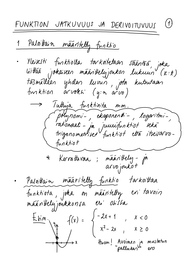 FUNKTION JATKUVUUS JA DERIVOITUVUUS
1
1 Paloittain määritelty funktio
• Yleisesti funktiolla tarkoitetaan sääntöä, joka
liittää jokaiseen määrittelyjoukon lukuun
täsmälleen yhden luvun, jota kutsutaan
funktion arvoksi
→ Tuttuja funktioita mm.
polynomi-, eksponentti-, logaritmi-,
rationaali- ja juurifunktiot sekä
trigonometriset funktiot että itseisarvo-
funktiot
* Kuvaajat, määrittely- ja
arvojoukot
• Paloittain määritelty funktio tarkoittaa
funktiota, joka on määritelty eri tavoin
määrittelyjoukkonsa eri osissa
Esim.
f(x) = { -2x+1 , x < 0
x² - 2x , x ≥ 0
Huom!